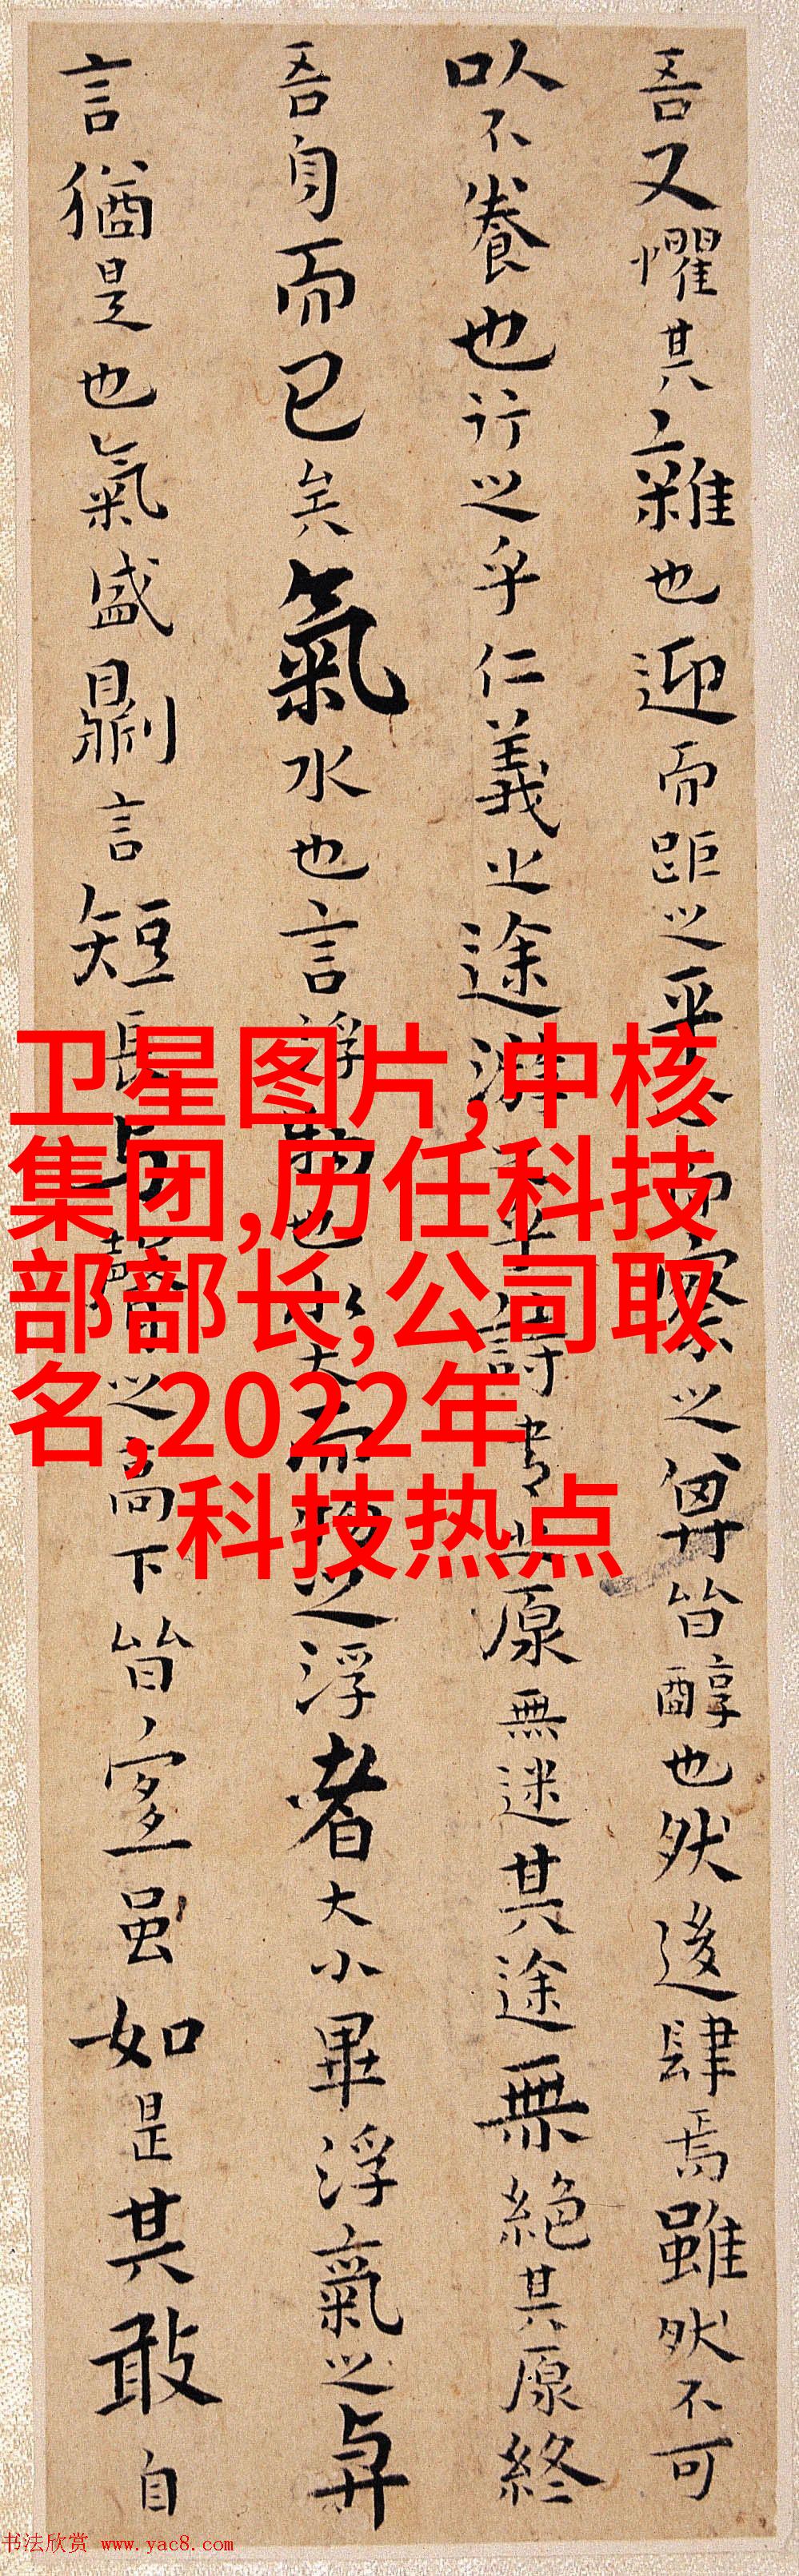 吾又懼其雜也迎而距之平心而察之其皆醇也然後肆焉雖然不可
以不養也行之乎仁義之途游之乎詩書之原無迷其途無絕其原終
吾身而已矣氣水也言浮物也水大而物之浮者大小畢浮氣之與
言猶是也氣盛則言短長與聲之高下皆宜雖如是其敢自
卫星图片,中核
集团,历任科技
部部长,公司取
名,2022年
科技热点
书法欣赏 www.yac8.com